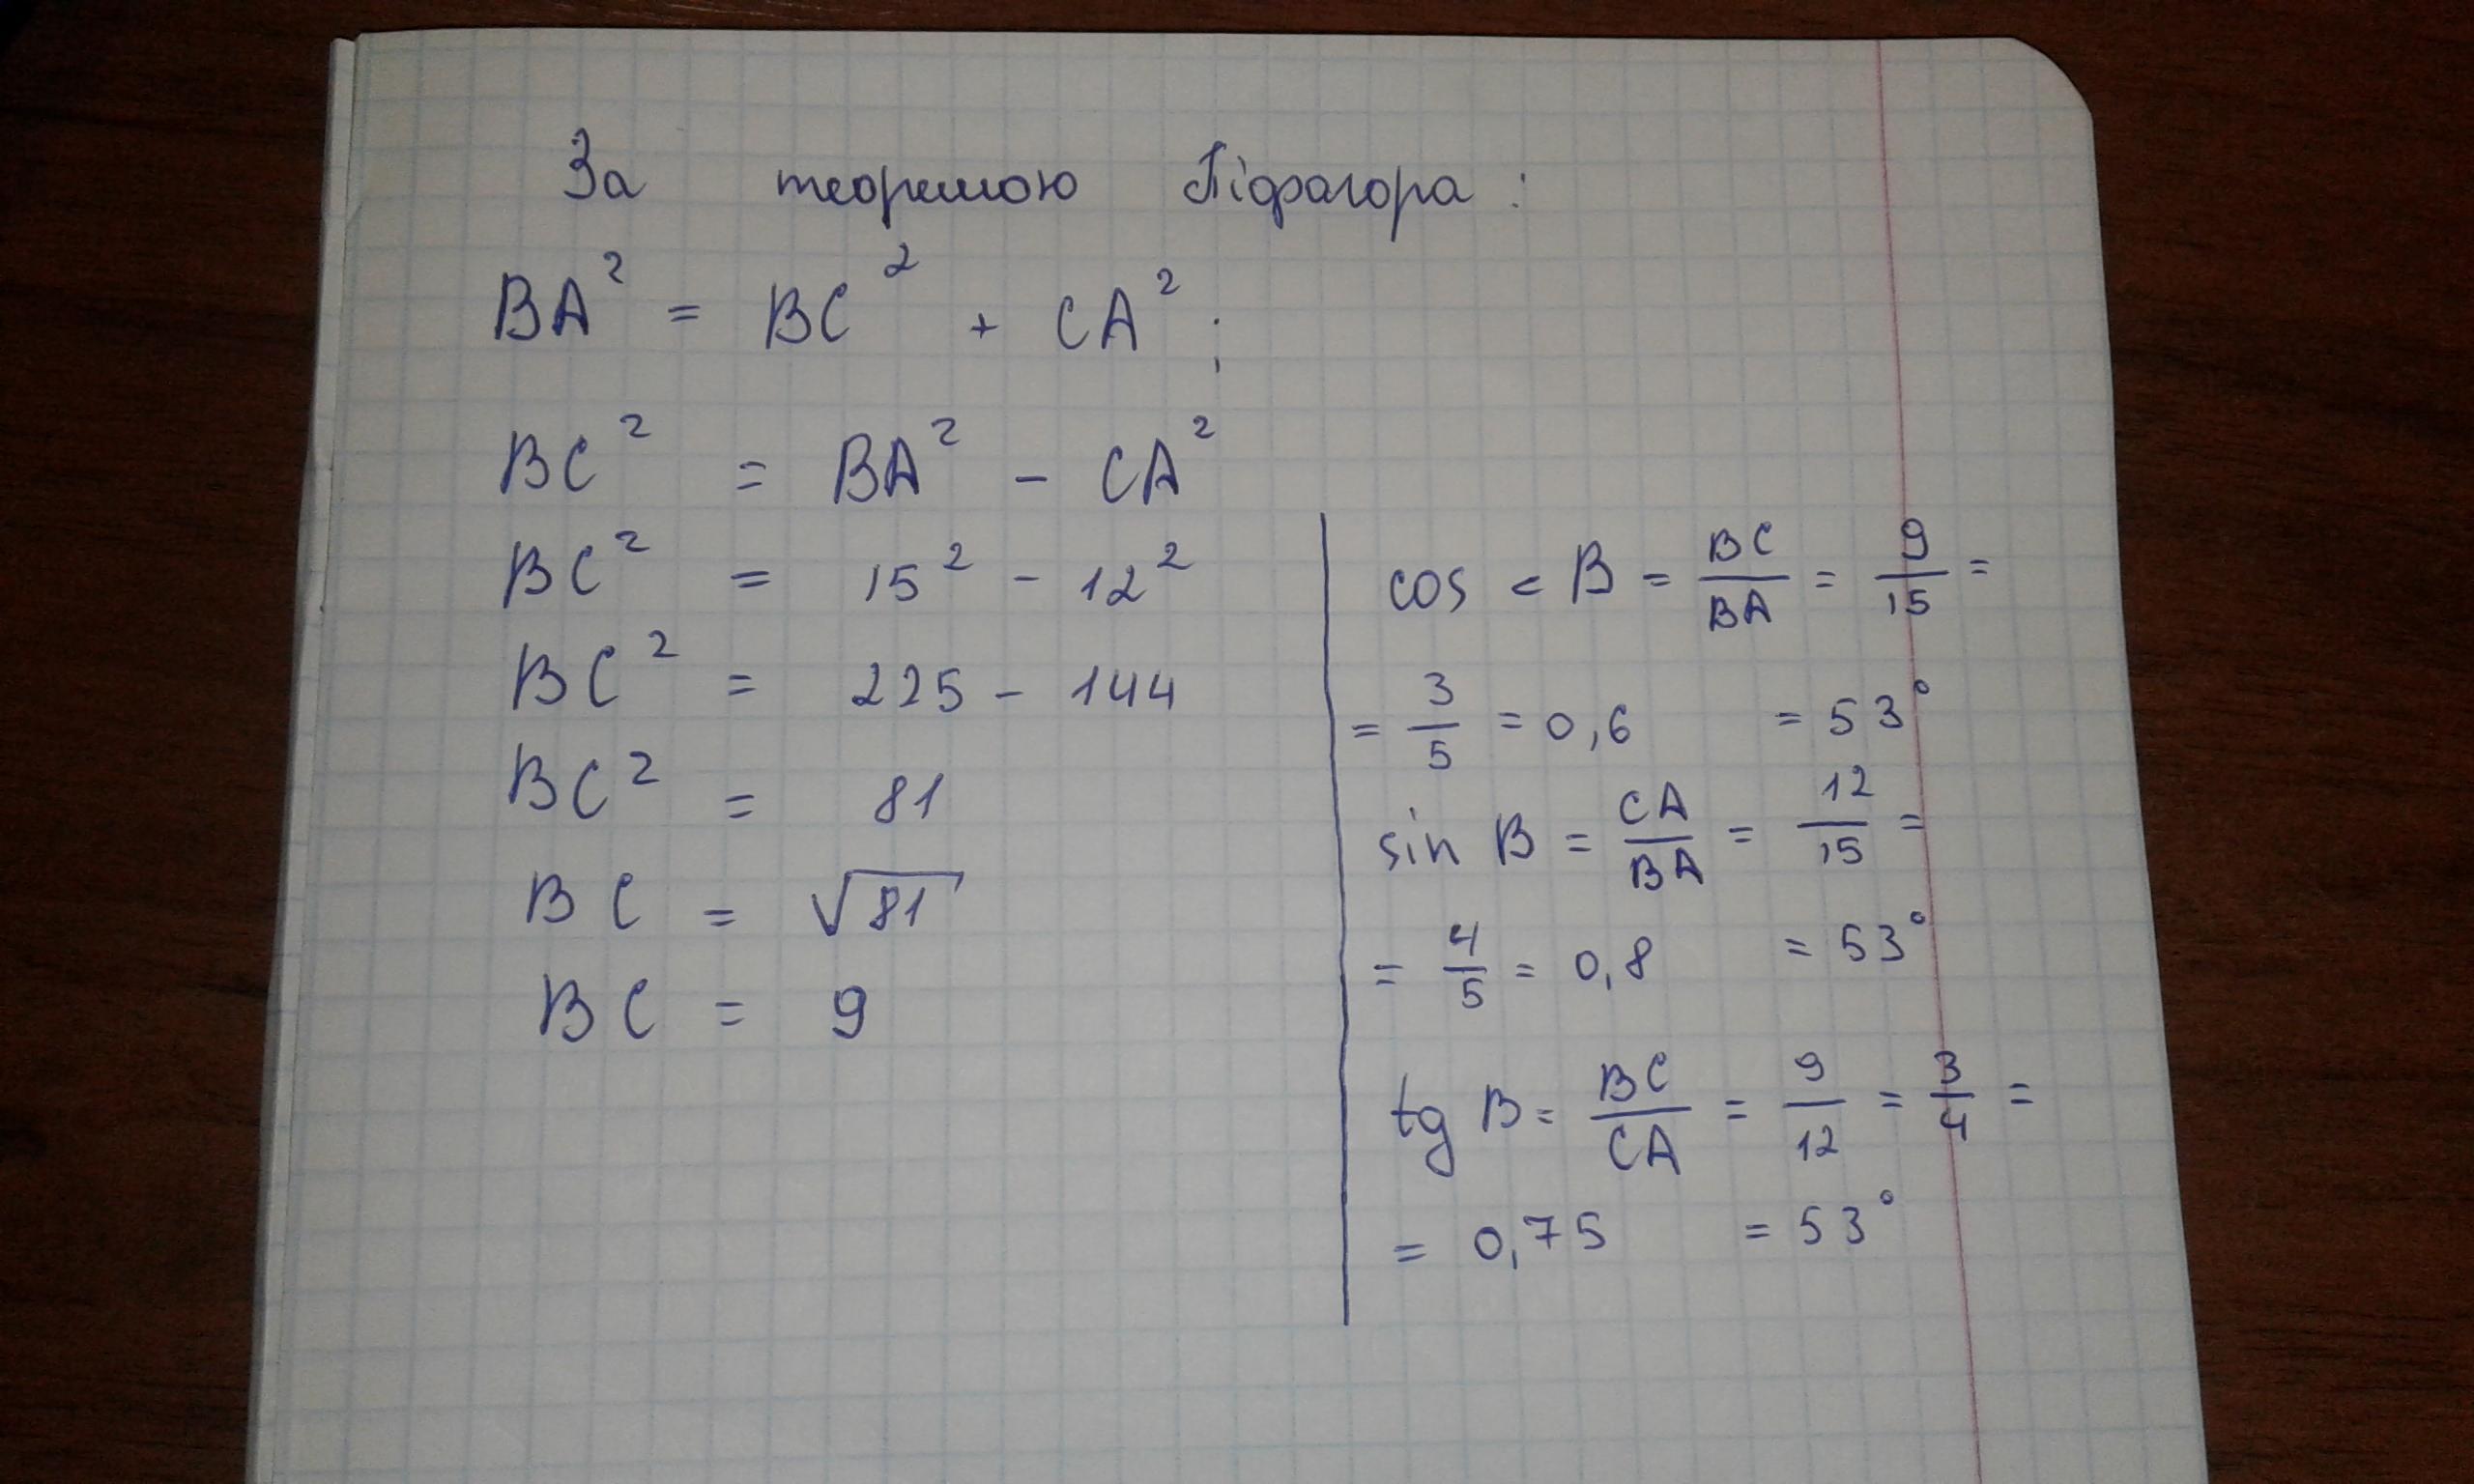 За теоремою Піфагора:
BA² = BC² + CA²;
BC² = BA² - CA²
BC² = 15² - 12²
BC² = 225 - 144
BC² = 81
BC = √81
BC = 9
cos < B = BC/BA = 9/15 =
= 3/5 = 0,6 = 53°
sin B = CA/BA = 12/15 =
= 4/5 = 0,8 = 53°
tg B = BC/CA = 9/12 = 3/4 =
= 0,75 = 53°